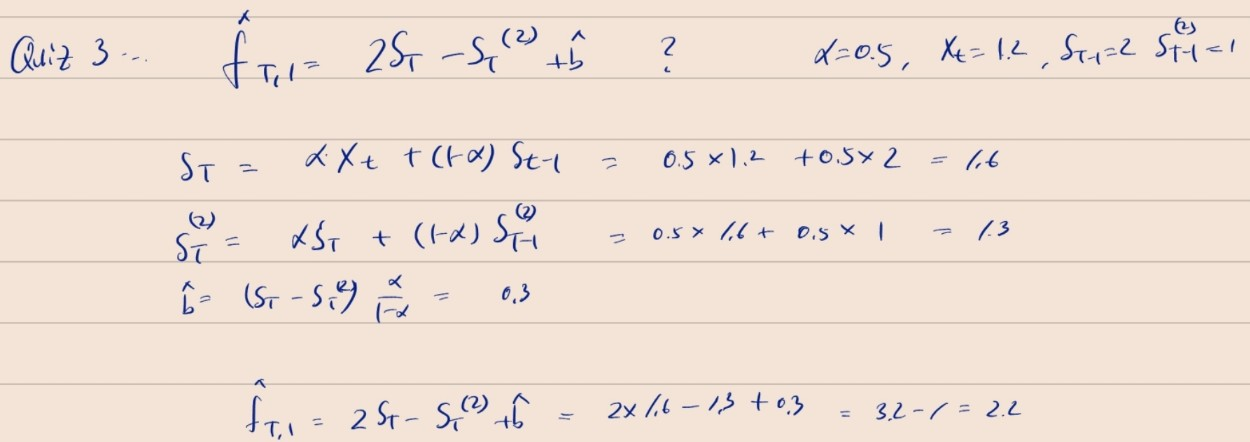 Quiz 3 ... f̂_{T,1} = 2S_T - S_T^{(2)} + b̂ ? α=0.5, X_t=1.2, S_{T-1}=2 S_{T-1}^{(2)}=1
S_T = α X_t + (1-α) S_{t-1} = 0.5 × 1.2 + 0.5 × 2 = 1.6
S_T^{(2)} = αS_T + (1-α) S_{T-1}^{(2)} = 0.5 × 1.6 + 0.5 × 1 = 1.3
b̂ = (S_T - S_T^{(2)}) α/(1-α) = 0.3
f̂_{T,1} = 2S_T - S_T^{(2)} + b̂ = 2 × 1.6 - 1.3 + 0.3 = 3.2 - 1 = 2.2